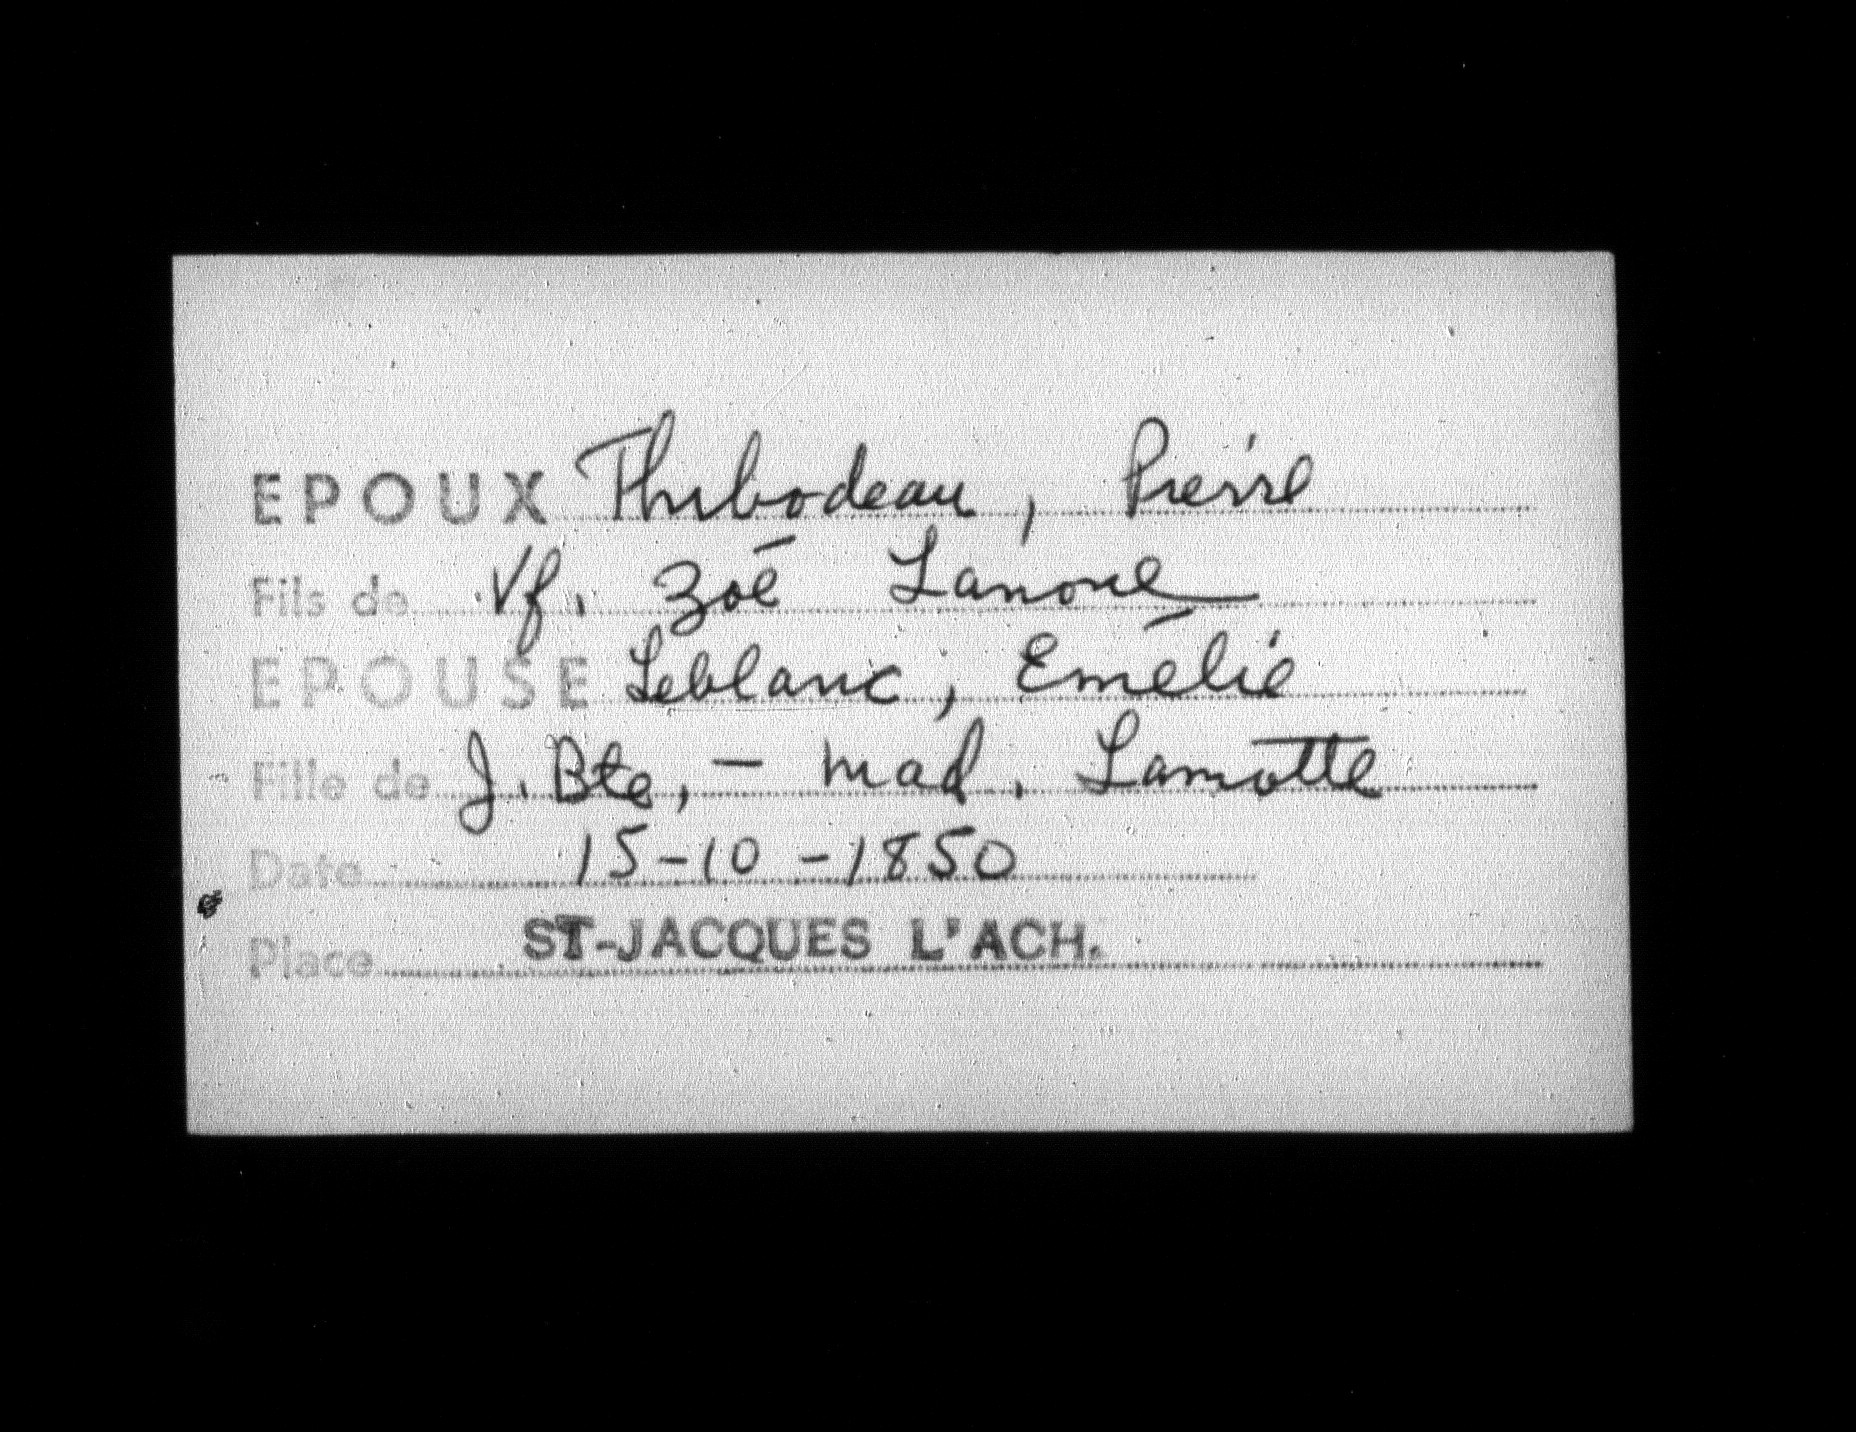 EPOUX Thibodeau, Pierre
Fils de Vf. Zoé Lanoue
EPOUSE Leblanc, Emélie
Fille de J. Bte, - Mad. Lamotte
Date 15-10-1850
Place ST-JACQUES L'ACH.